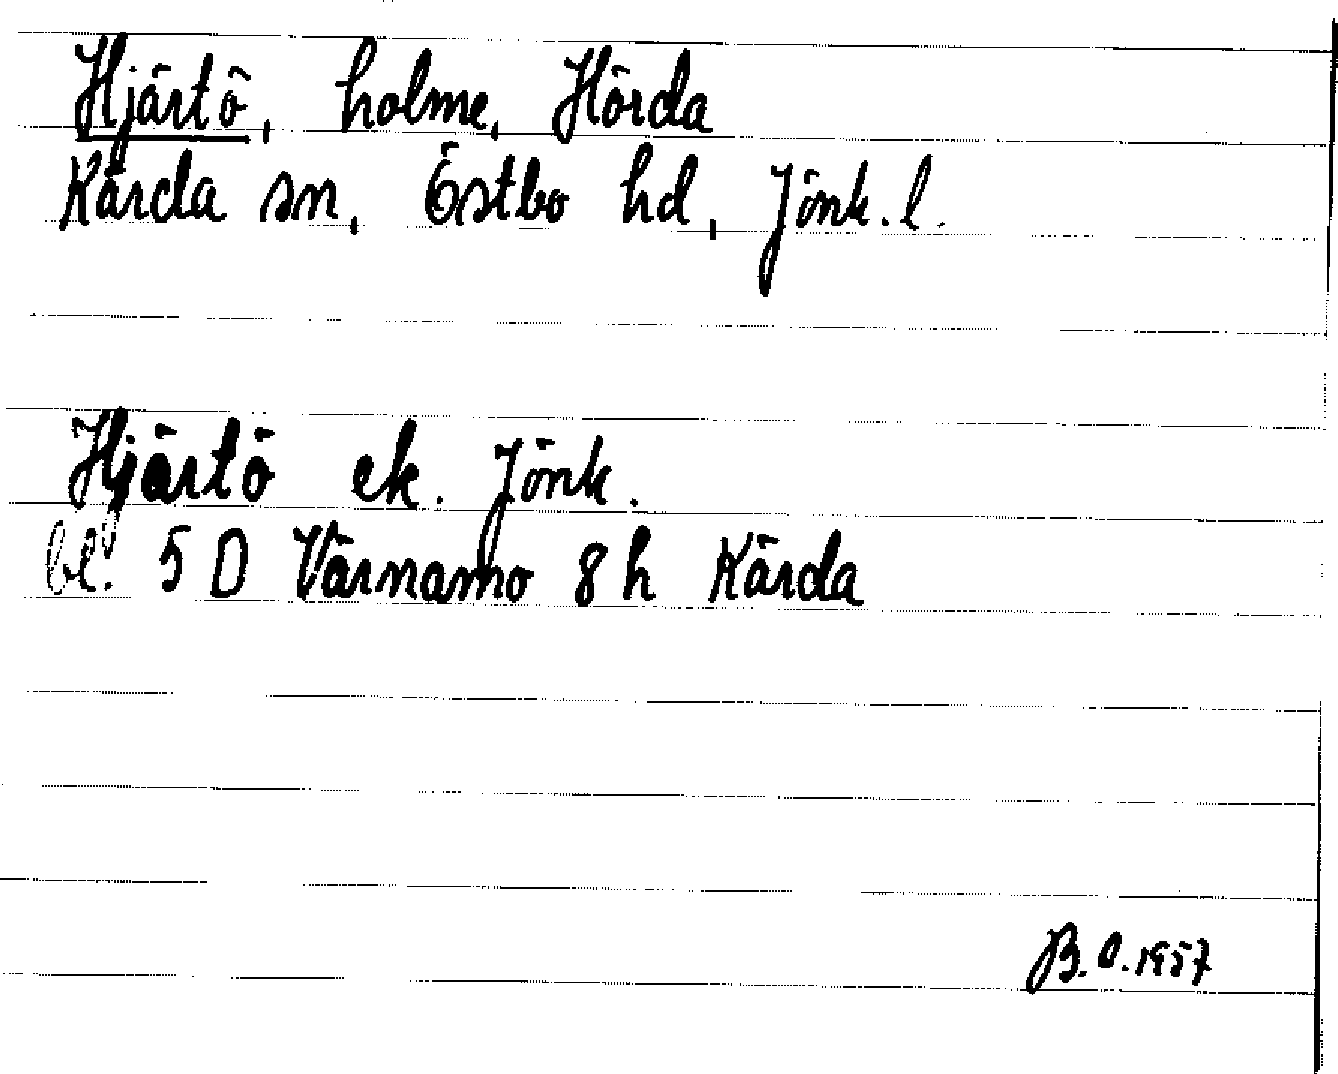 Hjärtö, holme, Hörda
Kärda sn, Östbo hd, Jönk. l.
Hjärtö ek. Jönk.
bl. 5 D Värnamo 8 h Kärda
B. O. 1957